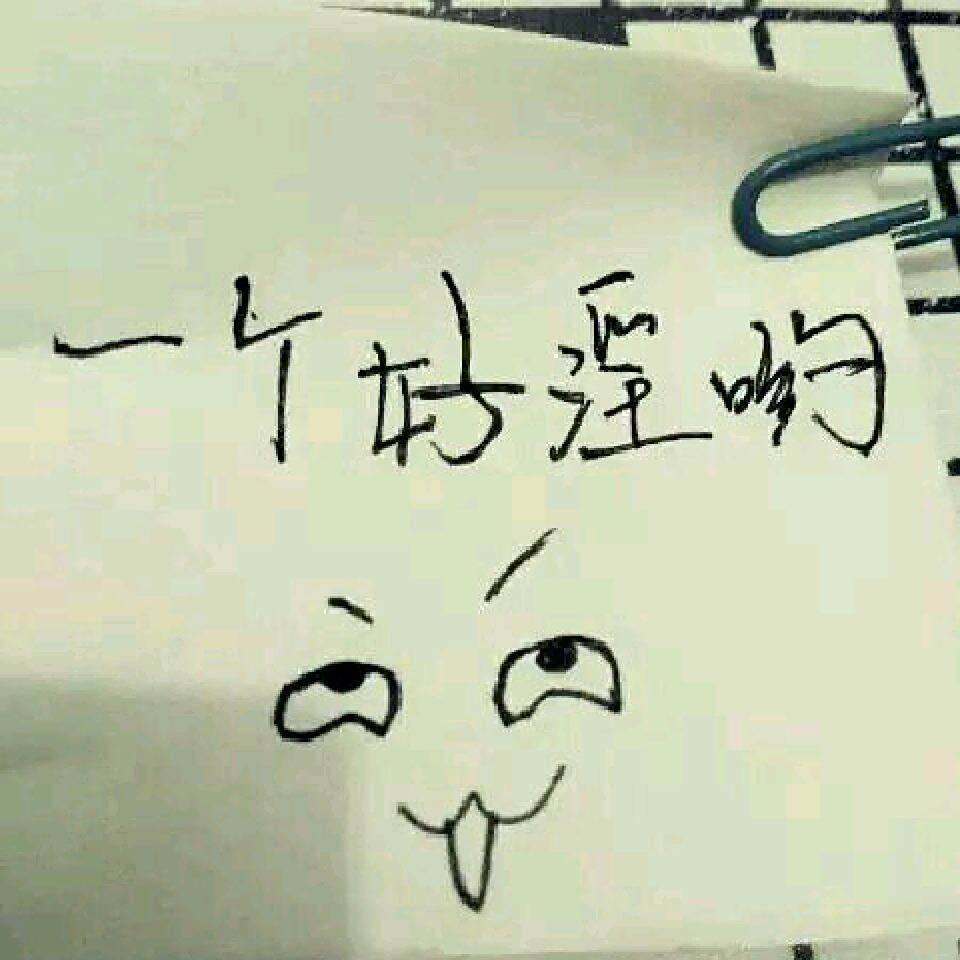 一个好淫哟